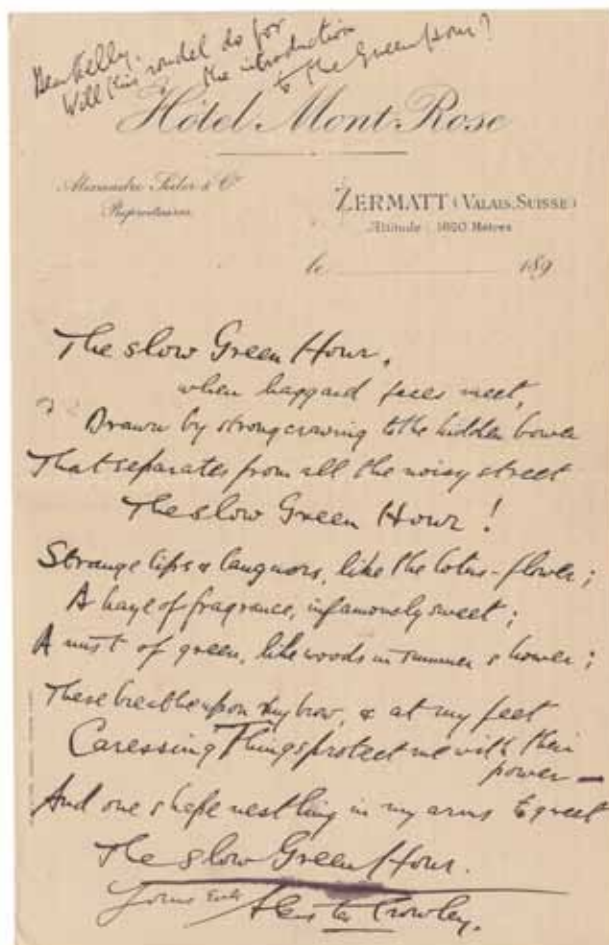 Dear Kelly.
Will this rondel do for
the introduction
to the Green Hour?
Hôtel Mont-Rose
Alexandre Seiler & Cie
Propriétaires
ZERMATT (VALAIS, SUISSE)
Altitude: 1620 Mètres
le 189
The slow Green Hour,
when haggard faces meet,
Drawn by strong craving to the hidden bower
That separates from all the noisy street
The slow Green Hour!
Strange lips & languors, like the lotus-flower;
A haze of fragrance, infamously sweet;
A mist of green, like woods in summer shower;
These breathe upon my brow, & at my feet
Caressing Things protect me with their
power —
And one shape nestling in my arms to greet
The slow Green Hour.
Yours Ever
Aleister Crowley.